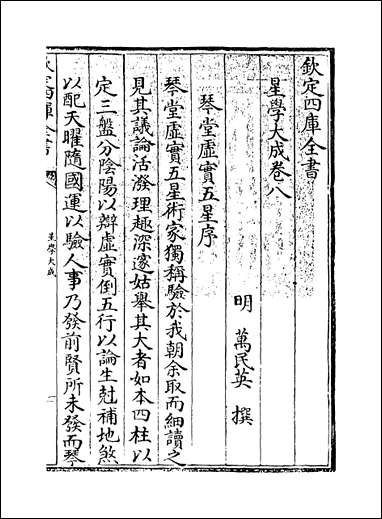 欽定四庫全書
星學大成卷八
明 萬民英 撰
琴堂虛實五星序
琴堂虛實五星術家獨稱驗於我朝余取而細讀之
見其議論活潑理趣深邃姑舉其大者如本四柱以
定三盤分陰陽以辯虛實倒五行以論生尅補地煞
以配天曜隨國運以驗人事乃發前賢所未發而琴
星學大成